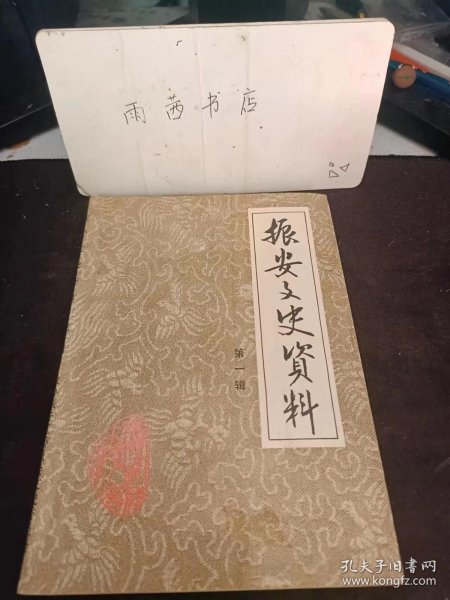 雨茜书店
振安文史資料
第一辑
孔夫子旧书网
www.kongfz.com